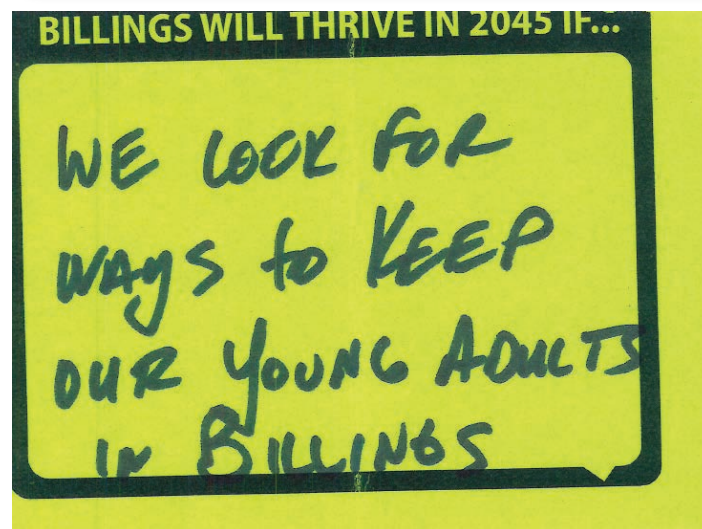 BILLINGS WILL THRIVE IN 2045 IF...
WE LOOK FOR
WAYS to KEEP
OUR YOUNG ADULTS
IN BILLINGS